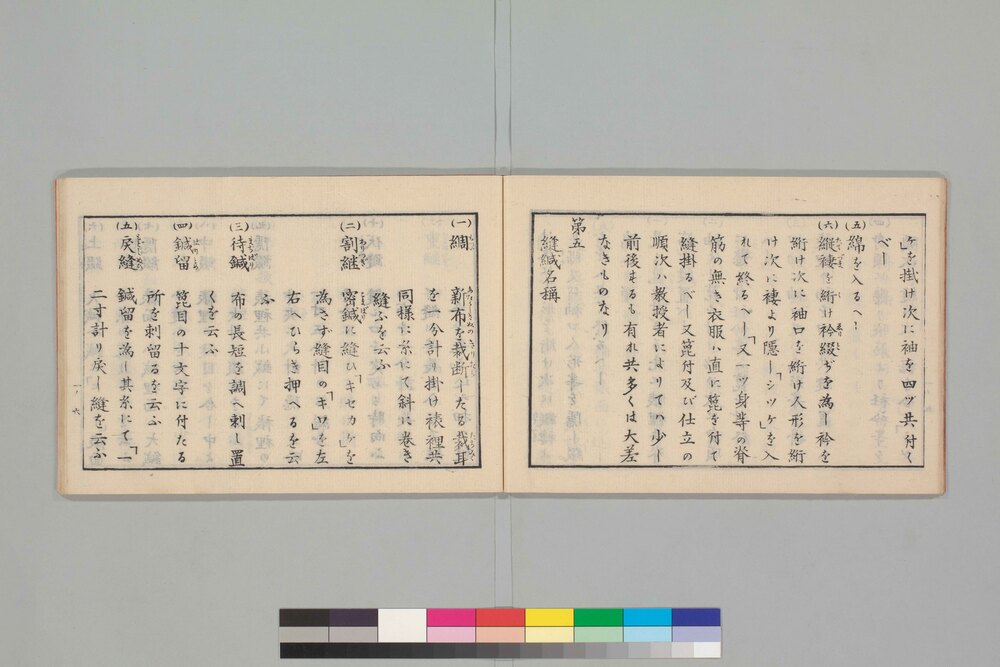 ケ」を掛け次に袖を四ツ共付く
べし
(五)綿を入るべし
(六)縦褄を絎け衿綴ぢを為し衿を
絎け次に袖口を絎け人形を絎
け次に褄より隠し「シツケ」を入
れて終るべし又一ツ身等の脊
筋の無き衣服ハ直に箆を付て
縫掛るべし又箆付及び仕立の
順次ハ教授者によりてハ少し
前後するも有れ共多くは大差
なきものなり
第五
縫緘名稱
(一)縐 新布を裁断したる裁耳
を一分計り掛け裱裡共
同様に糸にて斜に巻き
縫ふを云ふ
(二)割継 寄鍼に縫ひ「キセカケ」を
為さず縫目の「キワ」を左
右へひらき押へるを云
ふ
(三)待鍼 布の長短を調へ刺し置
くを云ふ
(四)鍼留 箆目の十文字に付たる
所を刺留るを云ふ
(五)戻縫 二寸計り戻し縫を云ふ
鍼留を為し其糸にて「一